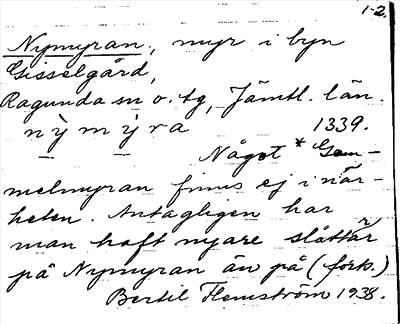 1-2.
Nymyran, myr i byn
Gisselgård,
Ragunda sn o. tg, Jämtl. län.
nỳmỳra 1339.
Något *Gam-
melmyran finns ej i när-
heten. Antagligen har
man haft nyare slåttår
på Nymyran än på (forts.)
Bertil Flemström 1938.